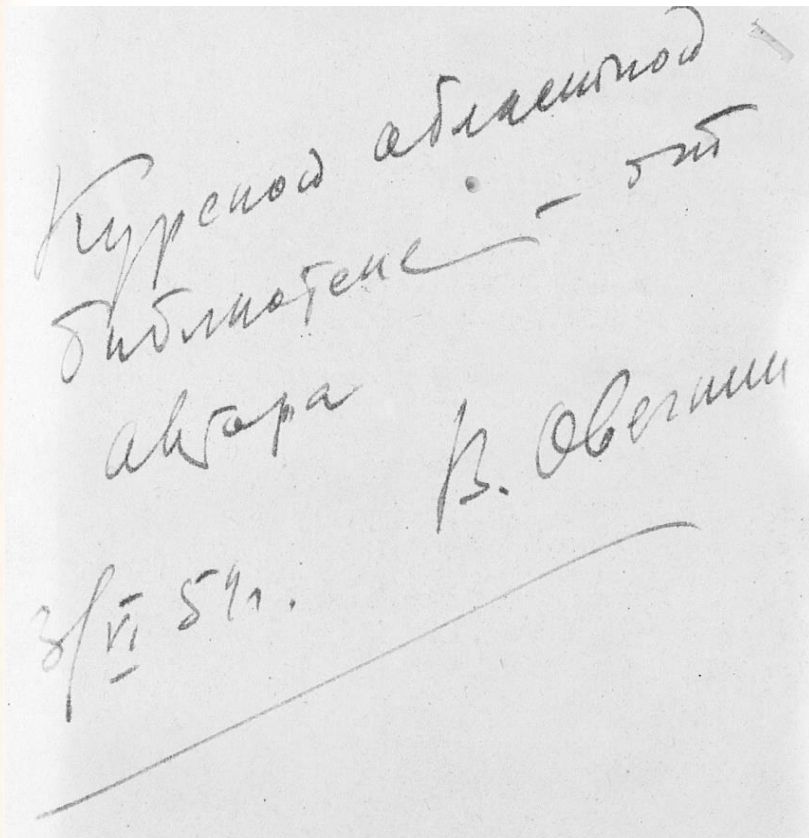 Курской областной
библиотеке – от
автора
В. Овечкин
3/VI 54г.